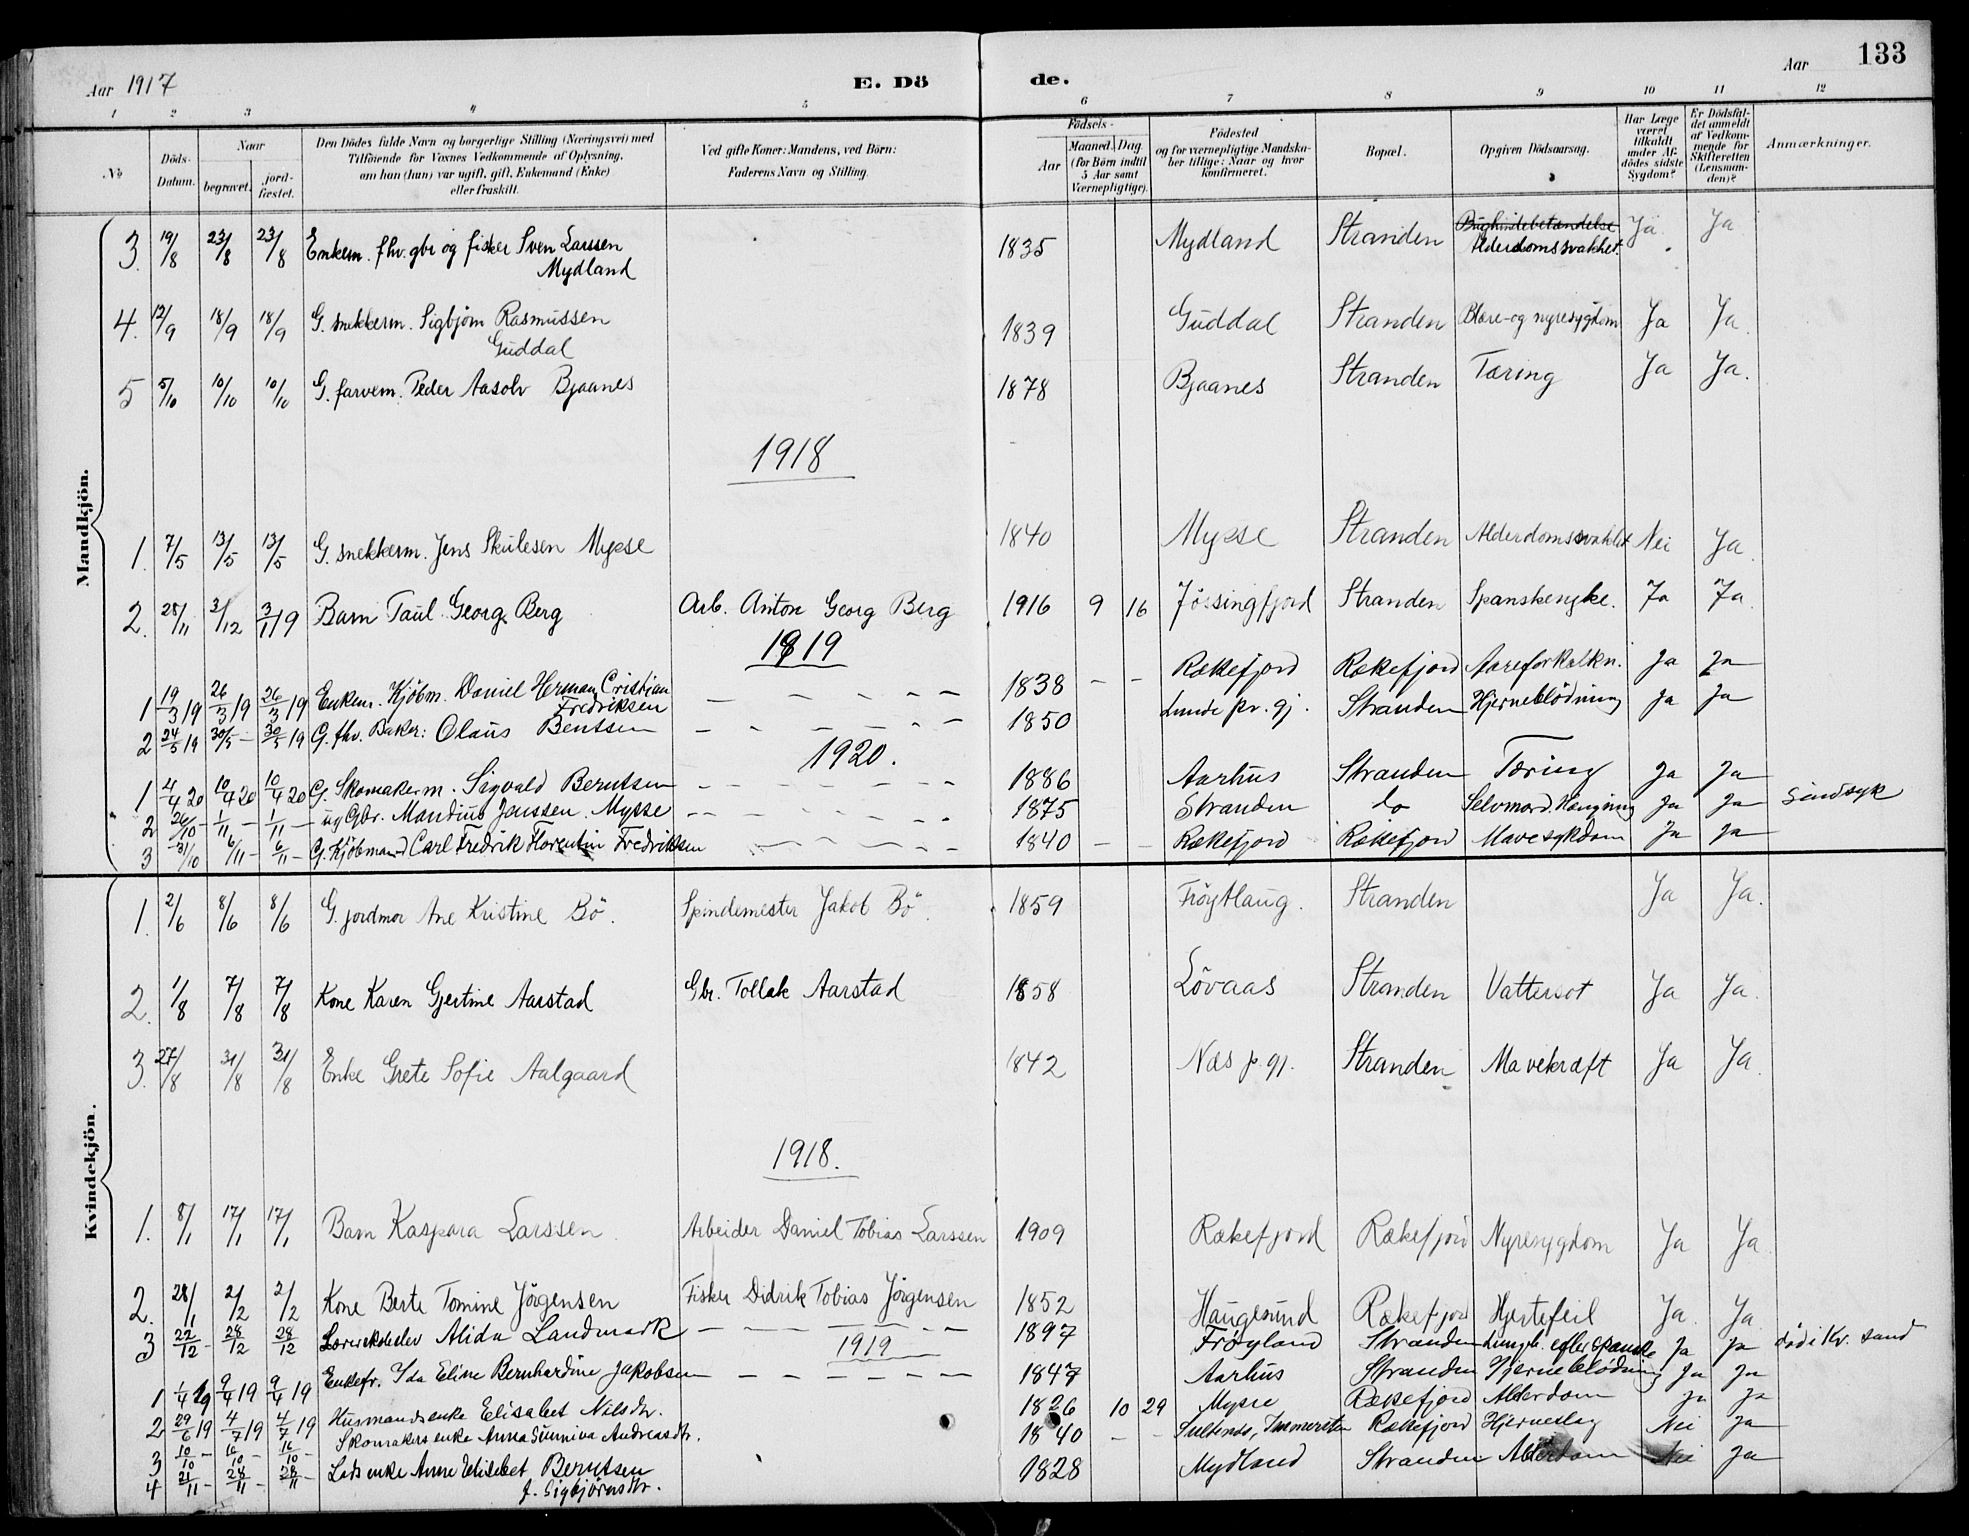 133
Aar 1917 E. Dö de. Aar
1 2 3 4 5 6 7 8 9 10 11 12
No
Döds-Datum.
Naar
begravet.
jord-fæstet.
Den Dödes fulde Navn og borgerlige Stilling (Næringsvei) med
Tilföiende för Voxnes Vedkommende af Oplysning,
om han (hun) var ugift, gift, Enkemand (Enke)
eller fraskilt.
Ved gifte Koner: Mandens, ved Börn:
Faderens Navn og Stilling.
Födsels-
Aar
Maaned. Dag.
(for Börn indtil
5 Aar samt
Værnepligtige).
Födested
og for værnepligtige Mandska-
ber tillige: Naar og hvor
konfirmeret.
Bopæl.
Opgiven Dödsaarsag.
Har Læge
været
tilkaldt
under Af-
dödes sidste
Sygdom?
Er Dödsfal-
det anmeldt
af Vedkom-
mende for
Skifteretten
(Lensman-
den)?
Anmærkninger.
Mandkjön.
3. 19/8 23/8 23/8 Enkem. fhv. gbr og fisker Sven Larssen 1835 Mydland Stranden Bughindebetændelse Ja Ja
Mydland Alderdomssvakhet.
4. 12/9 18/9 18/9 G. snekkerm. Sigbjörn Rasmussen 1839 Guddal Stranden Blære- og nyresygdom Ja Ja.
Guddal
5 5/10 10/10 10/10 G. farvem. Peder Aasolv Bjaanes 1878 Bjaanes Stranden Tæring Ja Ja.
1918
1. 7/5 13/5 13/5 G. snekkerm. Jens Skulesen Mysse 1840 Mysse Stranden Alderdomssvakhet Nei Ja.
2. 28/11 3/12 3/1 19 Barn Paul Georg Berg Arb. Anton Georg Berg 1916 9 16 Jössingfjord Stranden Spanskesyke. Ja Ja
1919
1 19/3 19 26/3 19 26/3 19 Enkem. Kjöbm. Daniel Herman Cristian 1838 - - Rækefjord Rækefjord Aareforkalkn. Ja Ja
Fredriksen
2 24/5 19 30/5 - 30/5 19 G. fhv. Baker: Olaus Bentsen 1850 Lunde pr. gj. Stranden Hjerneblödning Ja Ja
1920.
1 4/4 20 10/4 20 10/4 20 G. Skomakerm. Sigvald Berntsen 1886 Aarhus Stranden Tæring Ja Ja
2 26/10 - 1/11 - 1/11 - ug Gbr. Mandius Janssen Mysse 1875 Stranden do Selvmord. Hængning Ja Ja Sindsyk
3 31/10 6/11 - 6/11 - G. Kjöbmand Carl Fredrik Florentin Fredriksen 1840 - - Rækefjord Rækefjord Mavesykdom Ja Ja
Kvindekjön.
1. 2/6 8/6 8/6 G. jordmor Ane Kristine Bö. Spindemester Jakob Bö. 1859 Fröytlaug. Stranden Ja Ja.
2. 1/8 7/8 7/8 Kone Karen Gjertine Aarstad Gbr. Tollak Aarstad 1858 Lövaas Stranden Vattersot Ja Ja.
3. 27/8 31/8 31/8 Enke Grete Sofie Aalgaard 1842 Næs p. gj. Stranden Mavekræft Ja Ja.
1918.
1. 8/1 17/1 17/1 Barn Kaspara Larssen Arbeider Daniel Tobias Larssen 1909 Rækefjord Rækefjord Nyresygdom Ja Ja
2. 28/1 2/2 2/2 Kone Berte Tomine Jörgensen Fisker Didrik Tobias Jörgensen 1852 Haugesund Rækefjord Hjertefeil Ja. Ja
3 22/12 - 28/12 28/12 Lærerskoleelev Alida Landmark 1897 Fröyland Stranden Lungeb. efter spanske Ja Ja död i Kr. sand
1919
1 1/4 19 9/4 19 9/4 19 Enkefr. Ida Eline Bernhardine Jakobsen 1847 Aarhus Stranden Hjerneblödning Ja Ja
2 29/6 19 4/7 19 4/7 19 Husmandsenke Elisabet Nilsdtr. 1826 10 29 Mysse Rækefjord Alderdom Ja Ja
3 10/10 - 16/10 - 16/10 Skomakersenke Anna Gunniva Andreasdtr. 1840 - - Rækefjord Hjerneslag Nei Ja
4 21/11 - 28/11 - 28/11 - Lods enke Anne Elisabet Berntsen 1828 Mydland Stranden Alderdom Nei Ja
f. Sigbjörnsdtr.